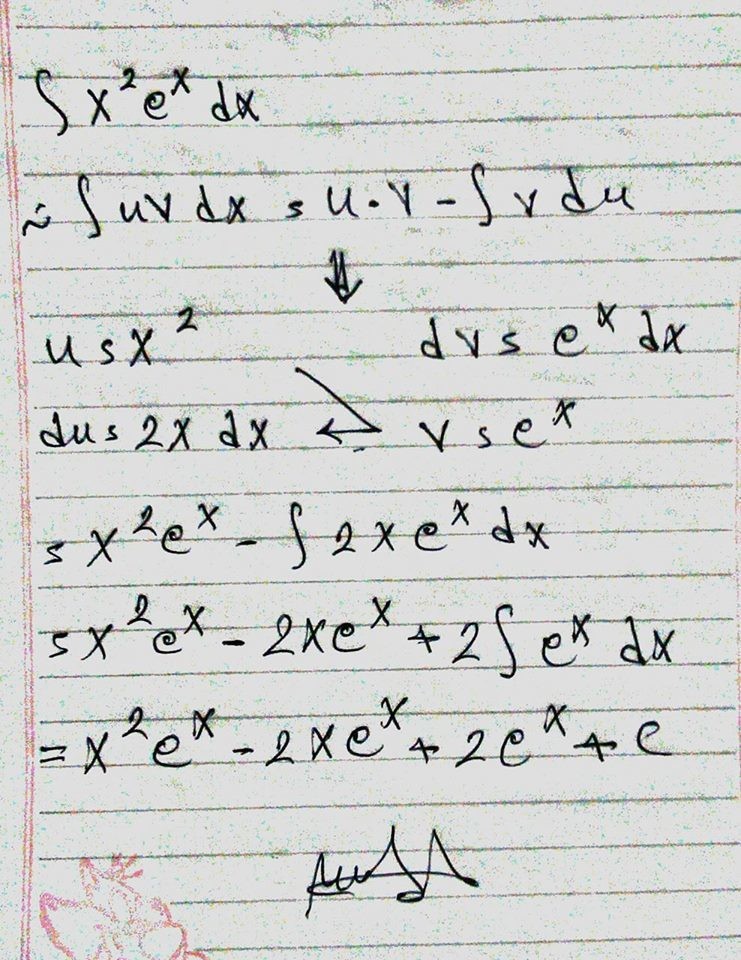 ∫ x²eˣ dx
∴ ∫ uv dx = u·v - ∫ v du
⇓
u = x² dv = eˣ dx
du = 2x dx ← v = eˣ
= x²eˣ - ∫ 2xeˣ dx
= x²eˣ - 2xeˣ + 2∫ eˣ dx
= x²eˣ - 2xeˣ + 2eˣ + c